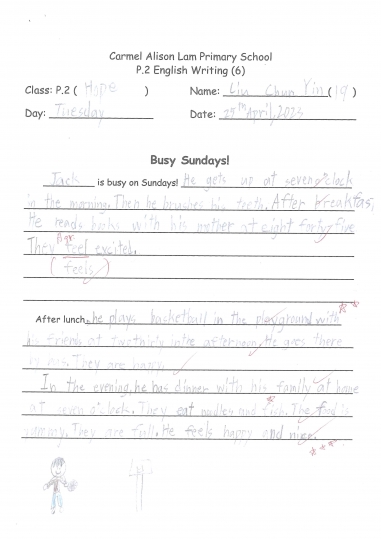 Carmel Alison Lam Primary School
P.2 English Writing (6)
Class: P.2 ( Hope ) Name: Liu Chun Yin ( 19 )
Day: Tuesday Date: 25th April, 2023
Busy Sundays!
Jack is busy on Sundays! He gets up at seven o'clock
in the morning. Then he brushes his teeth. After breakfast,
He reads books with his mother at eight forty-five
They feel excited.
(feels)
After lunch, he plays basketball in the playground with
his friends at two thirty in the afternoon. He goes there
by bus. They are happy.
In the evening, he has dinner with his family at home
at seven o'clock. They eat noodles and fish. The food is
yummy. They are full. He feels happy and nice.